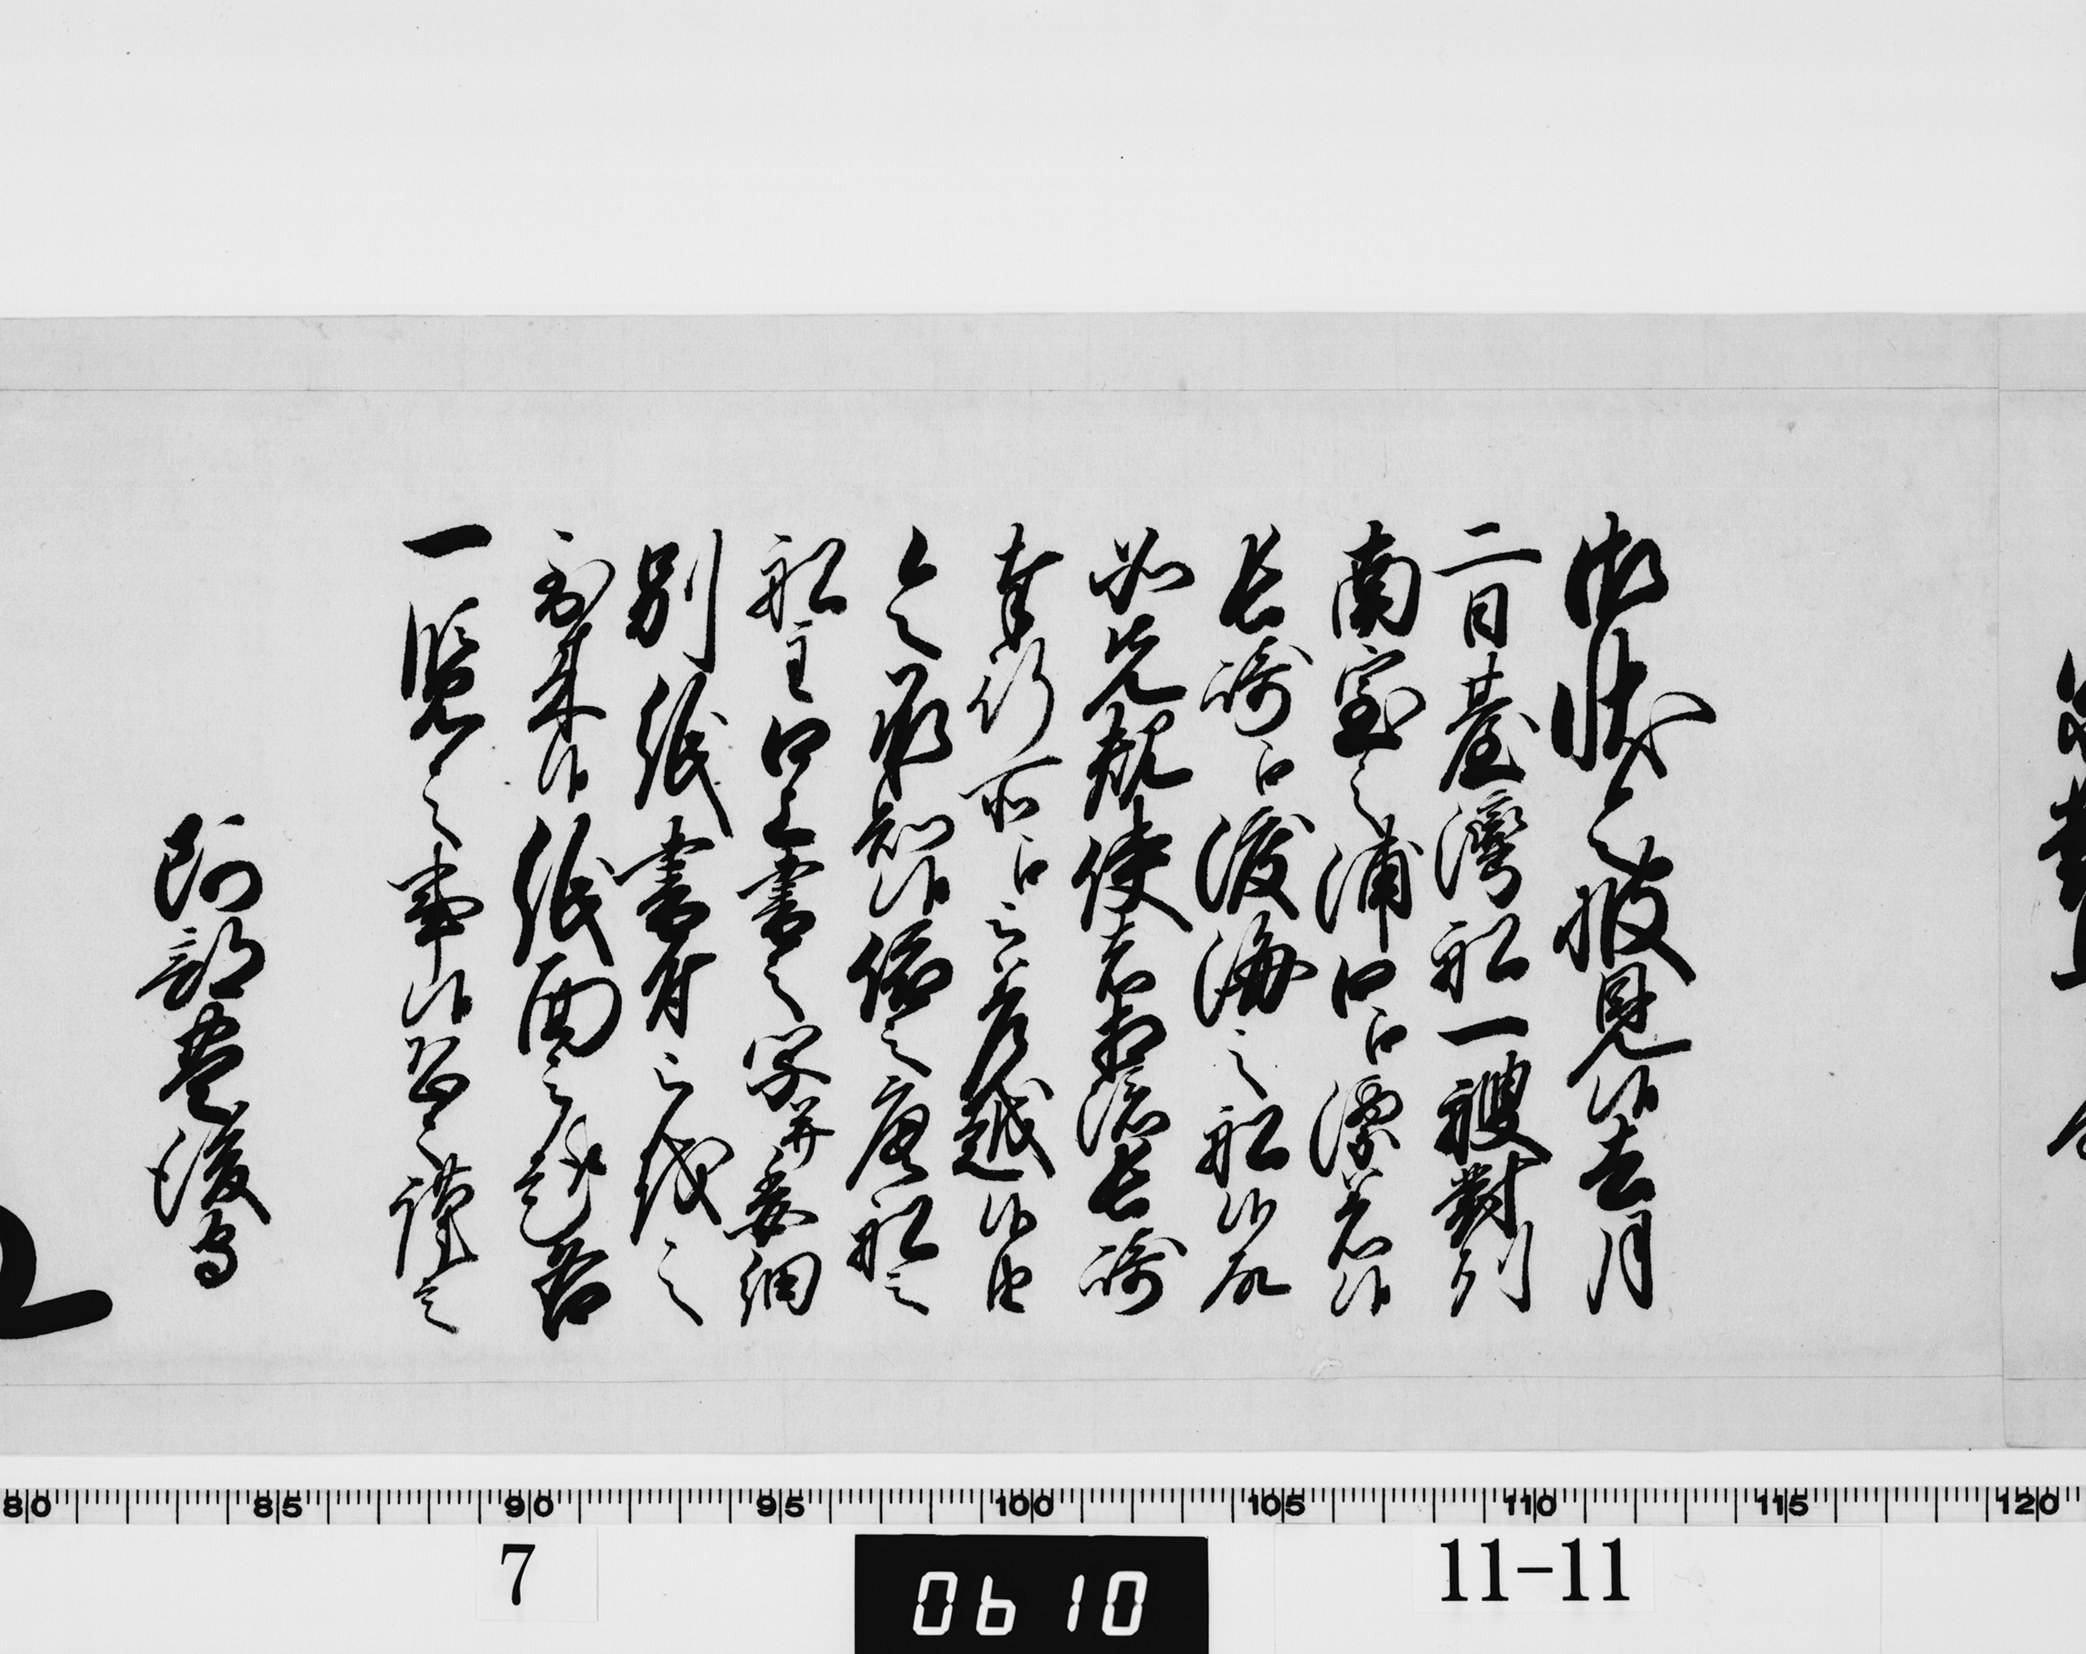 御状令披見候去月
二日臺灣船一艘對列
南室之浦口江漂着候
長崎江渡海之船候故
如先規使者相添長崎
奉行所江被差越候由
令承知候依之唐船之
船主口上書之写并委細
別紙書付被載之
到来候紙面之趣各
一覧之事候恐々謹言
阿部豊後守
80 85 90 95 100 105 110 115 120
7
0610
11-11